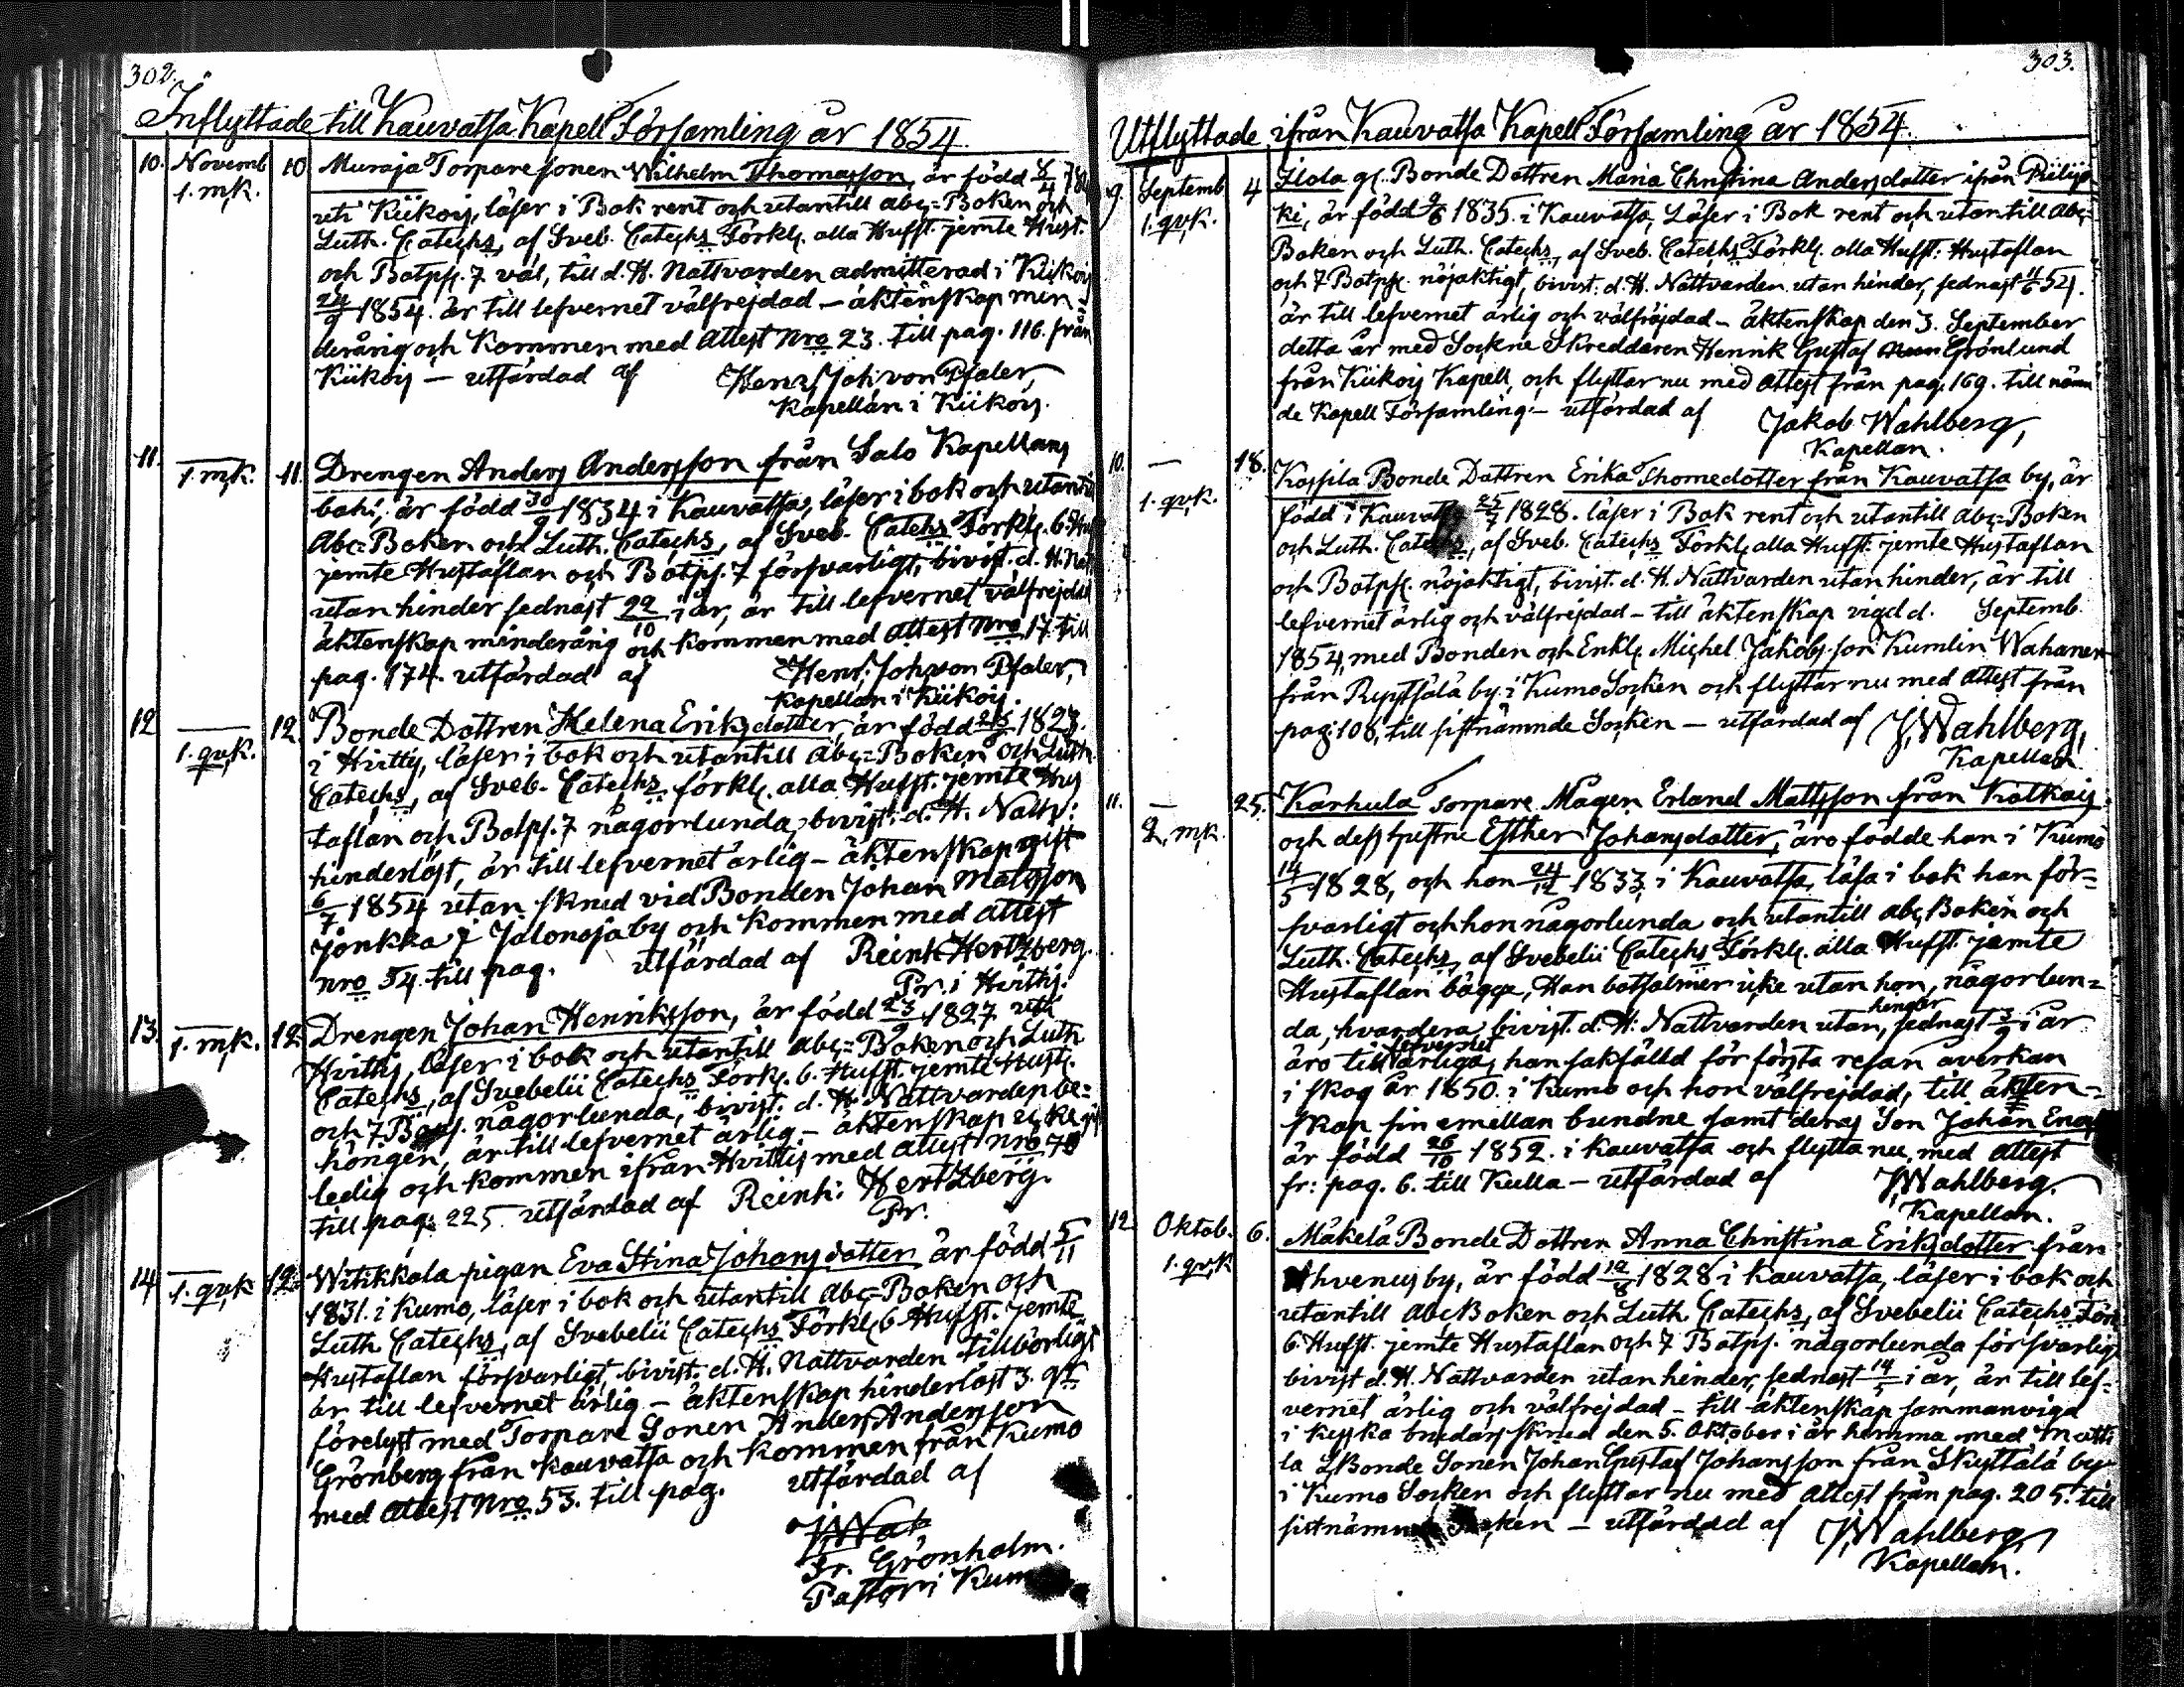 302.
Inflyttade till Kauvatsa Kapell Församling år 1854.
10. Novemb. 10 Muraja Torpare sonen Wilhelm Thomasson, är född
1. mk. uti Kiikois, läser i Bok rent och utantill abc=Boken och
Luth. Catechs, af Sveb. Catechs Förkl. alla Hufst. jemte Hust.
och Botps. 7 väl, till d. H. Nattvarden admitterad i Kiikois
24/9 1854. är till lefvernet välfrejdad – äktenskap min=
derårig och Kommen med Attest Nro 23. till pag. 116. från
Kiikois — utfärdad af Henr. Joh. von Pfaler,
Kapellan i Kiikois.
11. 1. mk. 11. Drengen Anders Andersson från Salo Kapellans
bohl, är född 30/9 1834 i Kauvatsa, läser i bok och utantill
Abc=Boken och Luth. Catechs, af Sveb. Catechs Förkl. 6 Huf
jemte Hustaflan och Botps. 7 försvarligt, bivist. d. H. Natt
utan hinder sednast 22/10 i år, är till lefvernet välfrejdad
äktenskap minderårig och kommen med Attest Nro 17. till
pag. 174. utfärdad af Henr. Joh. von Pfaler,
Kapellan i Kiikois.
12 1. qvk. 12. Bonde Dottren Helena Eriksdotter, är född
i Hvittis, läser i bok och utantill Abc=Boken och Luth.
Catechs, af Sveb. Catechs förkl. alla Hufst. jemte Hus
taflan och Botps. 7 någorlunda, bivist. d. H. Nattv:
hinderlöst, är till lefvernet ärlig – äktenskap gift
6/7 1854 utan sknad vid Bonden Johan Mattsson
Jonkka i Jalonoja by och kommen med attest
Nro 54. till pag. utfärdad af Reinh. Hertzberg.
Pr. i Hvittis.
13. 1. mk. 12. Drengen Johan Henriksson, är född 23/9 1827 uti
Hvittis, läser i bok och utantill abc=Boken och Luth
Catechs, af Svebelii Catechs Förkl. 6. Hufst. jemte Hust.
och 7 Botps. någorlunda, bivist. d. H. Nattvarden be=
hörigen, är till lefvernet ärlig – äktenskap icke
ledig och kommen ifrån Hvittis med attest Nro 70
till pag: 225. utfärdad af Reinh: Hertzberg.
Pr.
14 1. qvk 12. Witikkala pigan Eva Stina Johansdotter är född 5/11
1831. i Kumo, läser i bok och utantill Abc=Boken och
Luth. Catechs, af Svebelii Catechs Förkl. 6 Hufst. jemte
Hustaflan försvarligt, bivist. d. H. Nattvarden tillbörligt
är till lefvernet ärlig – äktenskap hinderlöst 3. gr
förelyst med Torpare Sonen Anders Andersson
Grönberg från Kauvatsa och kommen från Kumo
med attest Nro 53. till pag. utfärdad af
J. Wah
Fr. Grönholm.
Pastor i Kumo
303.
Utflyttade ifrån Kauvatsa Kapell Församling år 1854.
9. Septemb. 4 Ilola gl. Bonde Dottren Maria Christina Andersdotter ifrån Piilijo
1. qvk. ki, är född 9/6 1835. i Kauvatsa, Läser i Bok rent och utantill abc=
Boken och Luth. Catechs, af Sveb. Catechs Förkl. alla Hufst: Hustaflan
och 7 Botps. nöjaktigt, bivist. d. H. Nattvarden utan hinder, sednast 11/6 54.
är till lefvernet ärlig och välfrejdad – äktenskap den 3. September
detta år med Sockne Skreddaren Henrik Gustaf Grönlund
från Kiikois Kapell, och flyttar nu med attest från pag. 169. till näm
de Kapell Församling – utfärdad af Jakob Wahlberg,
Kapellan.
10. 18. Kassila Bonde Dottren Erika Thomedotter från Kauvatsa by, är
1. qvk. född i Kauvatsa 25/7 1828. läser i Bok rent och utantill Abc=Boken
och Luth. Catechs, af Sveb. Catechs Förkl. alla Hufst. jemte Hustaflan
och Botps. nöjaktigt, bivist. d. H. Nattvarden utan hinder, är till
lefvernet ärlig och välfrejdad – till äktenskap vigd d. Septemb.
1854, med Bonden och Enkl. Michel Jakobsson Kumlin Wahanen
från Repsälä by i Kumo Socken och flyttar nu med attest från
pag: 108, till sistnämnde Socken – utfärdad af J. Wahlberg,
Kapellan
11. 25. Karhula Torpare Mågen Erland Mattsson från Kolkois
2. mk. och dess hustru Esther Johansdotter, äro födde han i Kumo
14/5 1828, och hon 24/12 1833 i Kauvatsa, läsa i bok han för=
svarligt och hon någorlunda och utantill abc Boken och
Luth. Catechs, af Svebelii Catechs Förkl. alla Hufst. jemte
Hustaflan bägge, Han botsalmer icke utan hon, någorlun=
da, hvardera bivist. d. H. Nattvarden utan hinder, sednast 3/9 i år
äro till lefvernet ärliga, han sakfälld för första resan averkan
i skog år 1850. i Kumo och hon välfrejdad, till äkten=
skap sin emellan bundne samt deras Son Johan Ena
är född 26/10 1852. i Kauvatsa och flytta nu med attest
fr: pag. 6. till Kulla – utfärdad af J. Wahlberg.
Kapellan.
12. Oktob. 6. Mäkelä Bonde Dottren Anna Christina Eriksdotter från
1. qvk Ahvenus by, är född 12/8 1828 i Kauvatsa, läser i bok och
utantill abc Boken och Luth. Catechs, af Svebelii Catechs För
6. Hufst. jemte Hustaflan och 7 Botps. någorlunda försvarligt
bivist d. H. Nattvarden utan hinder, sednast 14/5 i år, är till lef=
vernet ärlig och välfrejdad – till äktenskap sammanvigd
i Ryska brudarsknad den 5. Oktober i år hemma med Matti
la Bonde Sonen Johan Gustaf Johansson från Skyttälä by
i Kumo Socken och flyttar nu med attest från pag. 205. till
sistnämnde Socken – utfärdad af J. Wahlberg,
Kapellan.